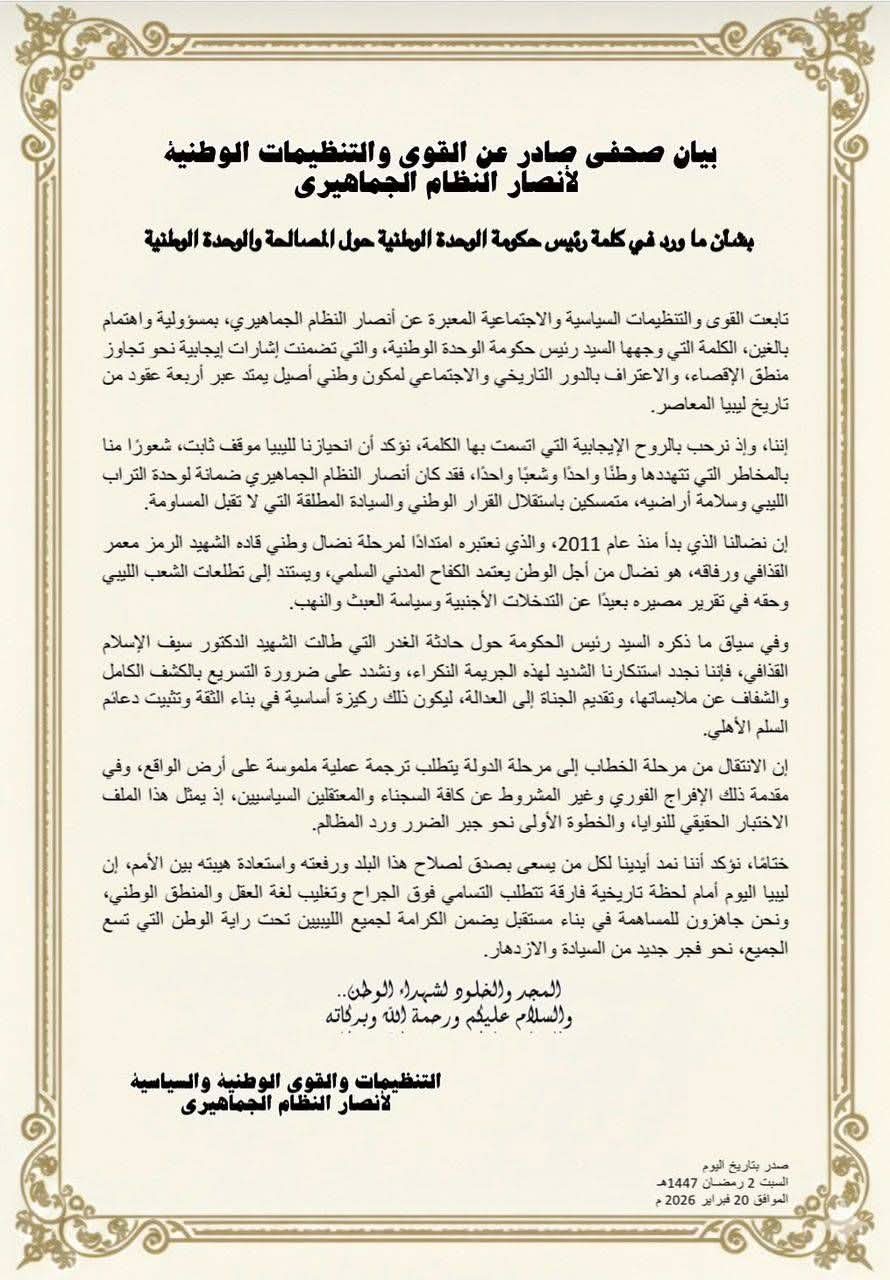 بيان صحفى صادر عن القوى والتنظيمات الوطنية
لأنصار النظام الجماهيرى
بشأن ما ورد في كلمة رئيس حكومة الوحدة الوطنية حول المصالحة والوحدة الوطنية
تابعت القوى والتنظيمات السياسية والاجتماعية المعبرة عن أنصار النظام الجماهيري، بمسؤولية واهتمام
بالغين، الكلمة التي وجهها السيد رئيس حكومة الوحدة الوطنية، والتي تضمنت إشارات إيجابية نحو تجاوز
منطق الإقصاء، والاعتراف بالدور التاريخي والاجتماعي لمكون وطني أصيل يمتد عبر أربعة عقود من
تاريخ ليبيا المعاصر.
إننا، وإذ نرحب بالروح الإيجابية التي اتسمت بها الكلمة، نؤكد أن انحيازنا لليبيا موقف ثابت، شعورًا منا
بالمخاطر التي تتهددها وطنًا واحدًا وشعبًا واحدًا، فقد كان أنصار النظام الجماهيري ضمانة لوحدة التراب
الليبي وسلامة أراضيه، متمسكين باستقلال القرار الوطني والسيادة المطلقة التي لا تقبل المساومة.
إن نضالنا الذي بدأ منذ عام 2011، والذي نعتبره امتدادًا لمرحلة نضال وطني قاده الشهيد الرمز معمر
القذافي ورفاقه، هو نضال من أجل الوطن يعتمد الكفاح المدني السلمي، ويستند إلى تطلعات الشعب الليبي
وحقه في تقرير مصيره بعيدًا عن التدخلات الأجنبية وسياسة العبث والنهب.
وفي سياق ما ذكره السيد رئيس الحكومة حول حادثة الغدر التي طالت الشهيد الدكتور سيف الإسلام
القذافي، فإننا نجدد استنكارنا الشديد لهذه الجريمة النكراء، ونشدد على ضرورة التسريع بالكشف الكامل
والشفاف عن ملابساتها، وتقديم الجناة إلى العدالة، ليكون ذلك ركيزة أساسية في بناء الثقة وتثبيت دعائم
السلم الأهلي.
إن الانتقال من مرحلة الخطاب إلى مرحلة الدولة يتطلب ترجمة عملية ملموسة على أرض الواقع، وفي
مقدمة ذلك الإفراج الفوري وغير المشروط عن كافة السجناء والمعتقلين السياسيين، إذ يمثل هذا الملف
الاختبار الحقيقي للنوايا، والخطوة الأولى نحو جبر الضرر ورد المظالم.
ختامًا، نؤكد أننا نمد أيدينا لكل من يسعى بصدق لصلاح هذا البلد ورفعته واستعادة هيبته بين الأمم، إن
ليبيا اليوم أمام لحظة تاريخية فارقة تتطلب التسامي فوق الجراح وتغليب لغة العقل والمنطق الوطني،
ونحن جاهزون للمساهمة في بناء مستقبل يضمن الكرامة لجميع الليبيين تحت راية الوطن التي تسع
الجميع، نحو فجر جديد من السيادة والازدهار.
المجد والخلود لشهداء الوطن..
والسلام عليكم ورحمة الله وبركاته
التنظيمات والقوى الوطنية والسياسية
لأنصار النظام الجماهيرى
صدر بتاريخ اليوم
السبت 2 رمضان 1447هـ
الموافق 20 فبراير 2026 م